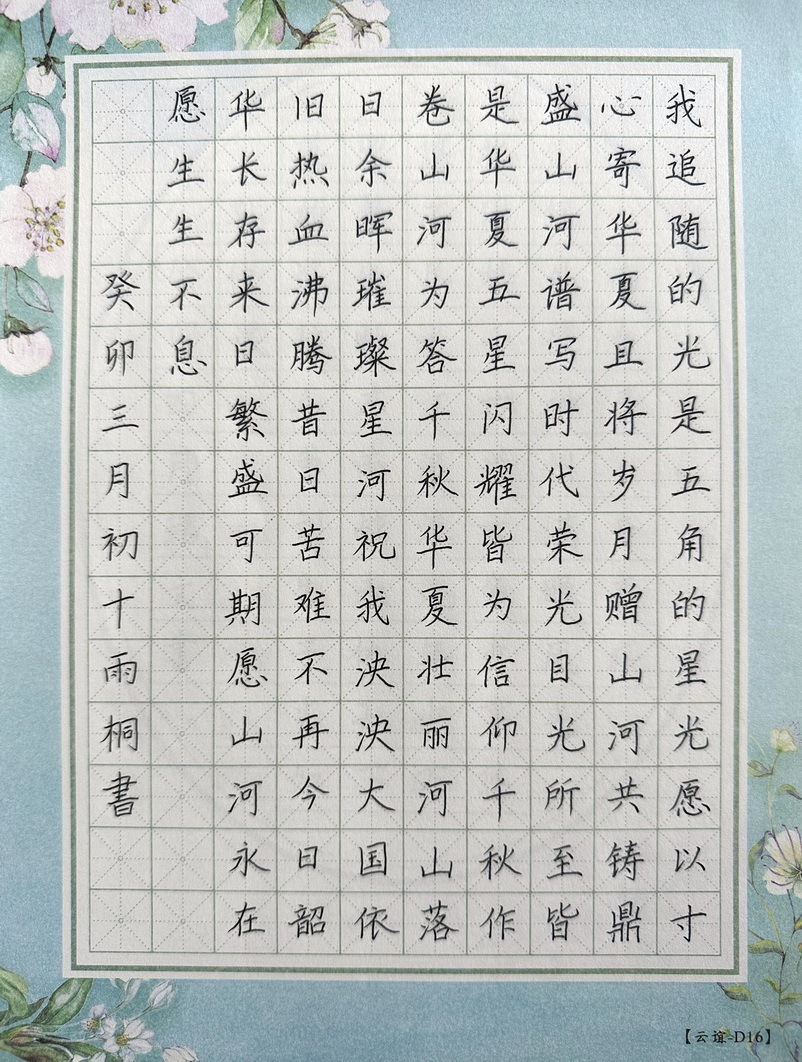 我追随的光是五角的星光愿以寸
心寄华夏且将岁月赠山河共铸鼎
盛山河谱写时代荣光目光所至皆
是华夏五星闪耀皆为信仰千秋作
卷山河为答千秋华夏壮丽河山落
日余晖璀璨星河祝我泱泱大国依
旧热血沸腾昔日苦难不再今日韶
华长存来日繁盛可期愿山河永在
愿生生不息
癸卯三月初十雨桐書
【云谊-D16】